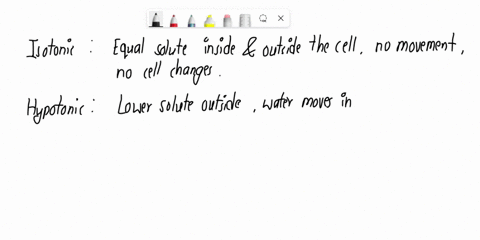 Isotonic : Equal solute inside & outside the cell, no movement,
no cell changes.
Hypotonic : Lower solute outside, water moves in